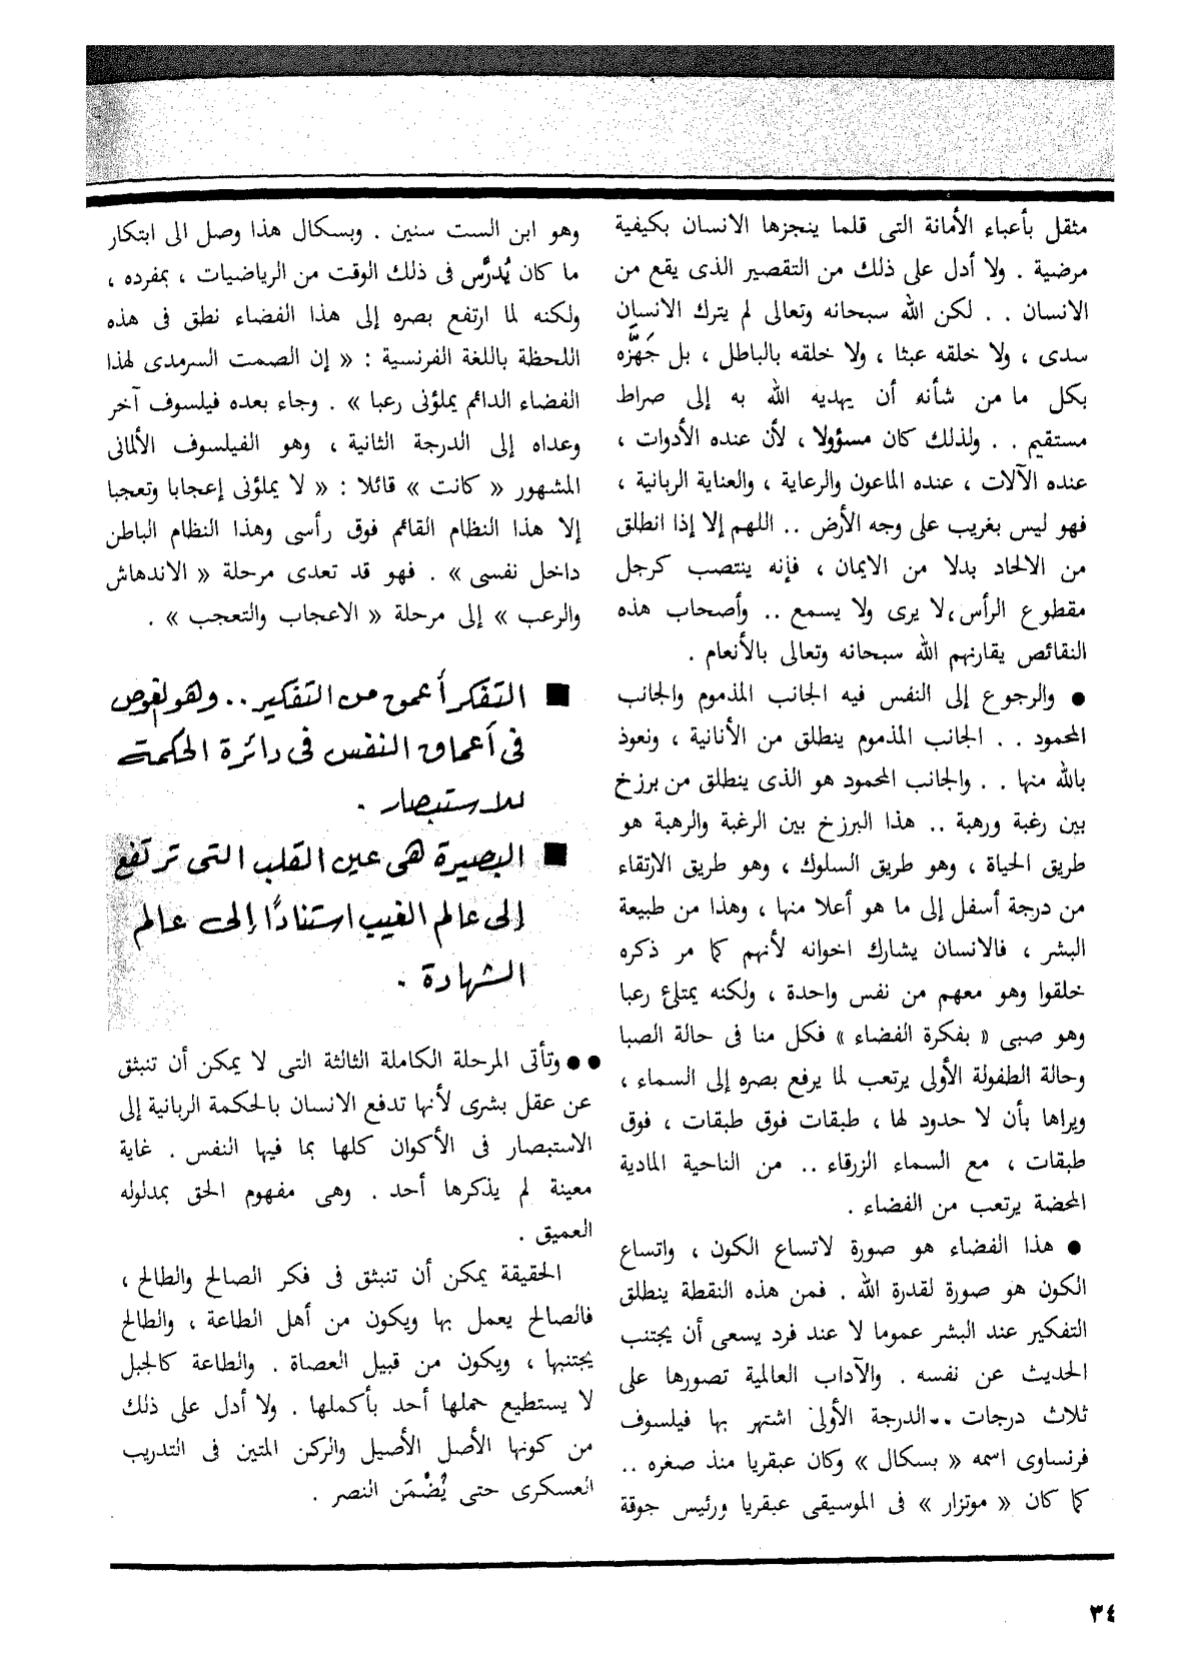 مثقل بأعباء الأمانة التى قلما ينجزها الانسان بكيفية
مرضية . ولا أدل على ذلك من التقصير الذى يقع من
الانسان . . لكن الله سبحانه وتعالى لم يترك الانسان
سدى ، ولا خلقه عبثا ، ولا خلقه بالباطل ، بل جَهَّزه
بكل ما من شأنه أن يهديه الله به إلى صراط
مستقيم . . ولذلك كان مسؤولا ، لأن عنده الأدوات ،
عنده الآلات ، عنده الماعون والرعاية ، والعناية الربانية ،
فهو ليس بغريب على وجه الأرض .. اللهم إلا إذا انطلق
من الالحاد بدلا من الايمان ، فإنه ينتصب كرجل
مقطوع الرأس،لا يرى ولا يسمع .. وأصحاب هذه
النقائص يقارنهم الله سبحانه وتعالى بالأنعام .
● والرجوع إلى النفس فيه الجانب المذموم والجانب
المحمود . . الجانب المذموم ينطلق من الأنانية ، ونعوذ
بالله منها . . والجانب المحمود هو الذى ينطلق من برزخ
بين رغبة ورهبة .. هذا البرزخ بين الرغبة والرهبة هو
طريق الحياة ، وهو طريق السلوك ، وهو طريق الارتقاء
من درجة أسفل إلى ما هو أعلا منها ، وهذا من طبيعة
البشر ، فالانسان يشارك اخوانه لأنهم كما مر ذكره
خلقوا وهو معهم من نفس واحدة ، ولكنه يمتلئ رعبا
وهو صبى « بفكرة الفضاء » فكل منا فى حالة الصبا
وحالة الطفولة الأولى يرتعب لما يرفع بصره إلى السماء ،
ويراها بأن لا حدود لها ، طبقات فوق طبقات ، فوق
طبقات ، مع السماء الزرقاء .. من الناحية المادية
المحضة يرتعب من الفضاء .
● هذا الفضاء هو صورة لاتساع الكون ، واتساع
الكون هو صورة لقدرة الله . فمن هذه النقطة ينطلق
التفكير عند البشر عموما لا عند فرد يسعى أن يجتنب
الحديث عن نفسه . والآداب العالمية تصورها على
ثلاث درجات .. الدرجة الأولى اشتهر بها فيلسوف
فرنساوى اسمه « بسكال » وكان عبقريا منذ صغره ..
كما كان « موتزار » فى الموسيقى عبقريا ورئيس جوقة
وهو ابن الست سنين . وبسكال هذا وصل الى ابتكار
ما كان يُدرَّس فى ذلك الوقت من الرياضيات ، بمفرده ،
ولكنه لما ارتفع بصره إلى هذا الفضاء نطق فى هذه
اللحظة باللغة الفرنسية : « إن الصمت السرمدى لهذا
الفضاء الدائم يملؤنى رعبا » . وجاء بعده فيلسوف آخر
وعداه إلى الدرجة الثانية ، وهو الفيلسوف الألمانى
المشهور « كانت » قائلا : « لا يملؤنى إعجابا وتعجبا
إلا هذا النظام القائم فوق رأسى وهذا النظام الباطن
داخل نفسى » . فهو قد تعدى مرحلة « الاندهاش
والرعب » إلى مرحلة « الاعجاب والتعجب » .
■ التفكر أعمق من التفكير .. وهو لغوص
فى أعماق النفس فى دائرة الحكمة
للاستبصار .
■ البصيرة هى عين القلب التى ترتفع
إلى عالم الغيب استنادًا إلى عالم
الشهادة .
●● وتأتى المرحلة الكاملة الثالثة التى لا يمكن أن تنبثق
عن عقل بشرى لأنها تدفع الانسان بالحكمة الربانية إلى
الاستبصار فى الأكوان كلها بما فيها النفس . غاية
معينة لم يذكرها أحد . وهى مفهوم الحق بمدلوله
العميق .
الحقيقة يمكن أن تنبثق فى فكر الصالح والطالح ،
فالصالح يعمل بها ويكون من أهل الطاعة ، والطالح
يجتنبها ، ويكون من قبيل العصاة . والطاعة كالجبل
لا يستطيع حملها أحد بأكملها . ولا أدل على ذلك
من كونها الأصل الأصيل والركن المتين فى التدريب
العسكرى حتى يُضْمَن النصر .
٣٤